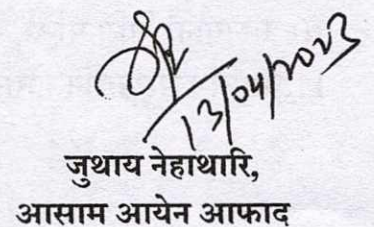 13/04/2023
जुथाय नेहाथारि,
आसाम आयेन आफाद